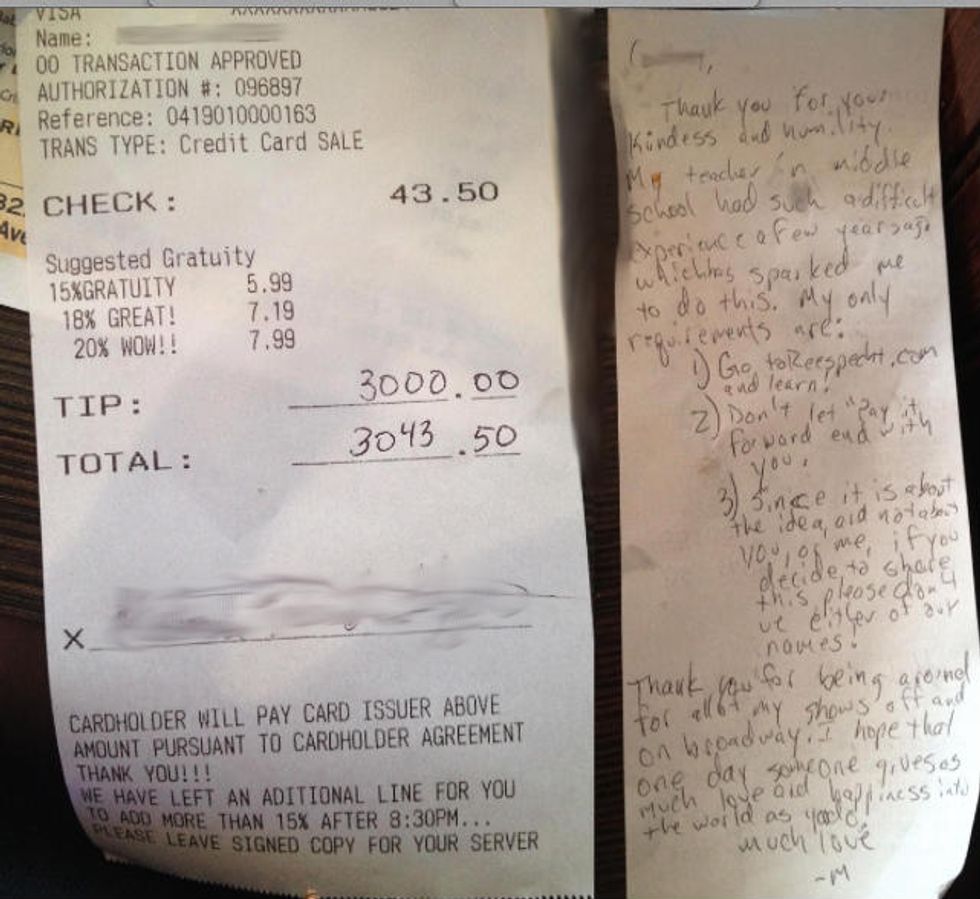 VISA
Name:
00 TRANSACTION APPROVED
AUTHORIZATION #: 096897
Reference: 0419010000163
TRANS TYPE: Credit Card SALE
CHECK: 43.50
Suggested Gratuity
15%GRATUITY 5.99
18% GREAT! 7.19
20% WOW!! 7.99
TIP: 3000.00
TOTAL: 3043.50
X
CARDHOLDER WILL PAY CARD ISSUER ABOVE
AMOUNT PURSUANT TO CARDHOLDER AGREEMENT
THANK YOU!!!
WE HAVE LEFT AN ADITIONAL LINE FOR YOU
TO ADD MORE THAN 15% AFTER 8:30PM...
PLEASE LEAVE SIGNED COPY FOR YOUR SERVER
Thank you for your
kindess and humility.
My teacher in middle
school had such a difficult
experience a few years ago
which has sparked me
to do this. My only
requirements are:
1) Go to Reespecht.com
and learn!
2) Don't let "Pay it
forward end with
you.
3) Since it is about
the idea, and not about
you, or me, if you
decide to share
this, please don't
use either of our
names!
Thank you for being around
for all of my shows off and
on broadway. I hope that
one day someone gives as
much love and happiness into
the world as you do.
much love
-M